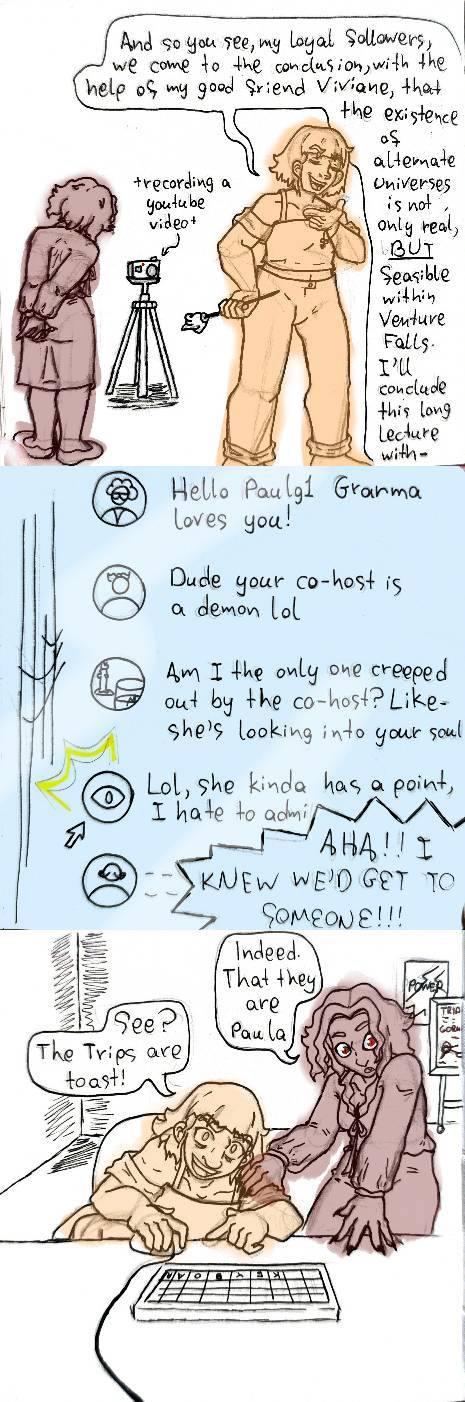 And so you see, my loyal followers,
we come to the conclusion, with the
help of my good friend Viviane, that
the existence
of
alternate
universes
is not
only real,
BUT
feasible
within
Venture
Falls.
I'll
conclude
this long
lecture
with-
+recording a
youtube
video+
Hello Paulg1 Granma
loves you!
Dude your co-host is
a demon lol
Am I the only one creeped
out by the co-host? Like-
she's looking into your soul
Lol, she kinda has a point,
I hate to admi
AHA!! I
KNEW WE'D GET TO
SOMEONE!!!
Indeed.
That they
are
Paula
See?
The Trips are
toast!
POWER
TRIP